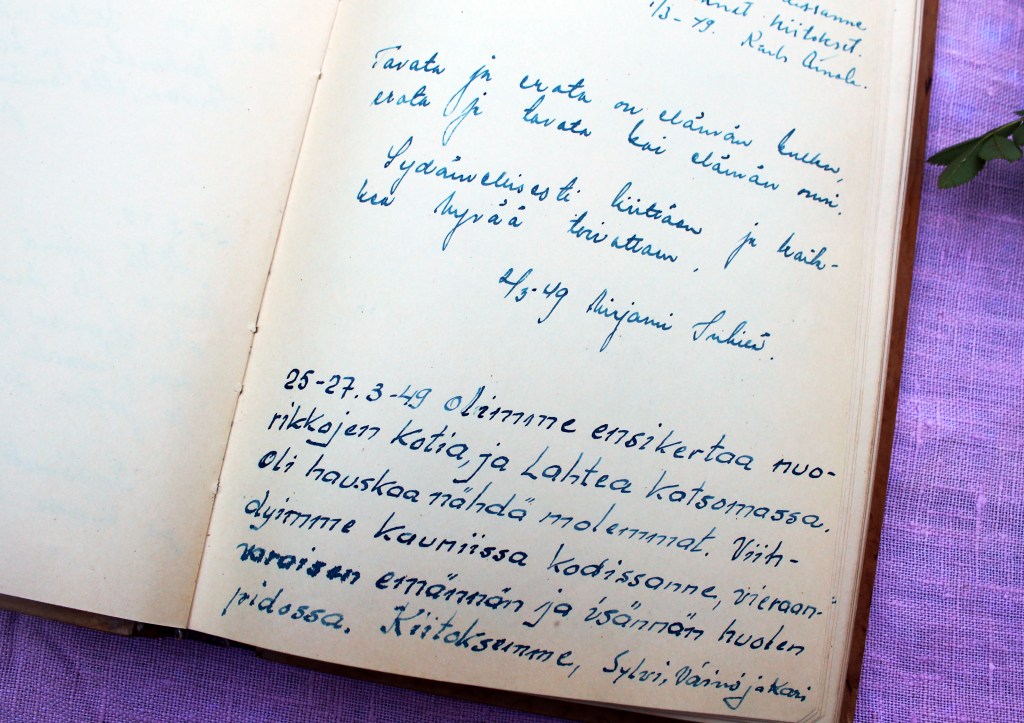 kiitokset.
1/3-49.
Tavata ja erota on elämän kulku,
erota ja tavata koi elämän onni.
Sydämellisesti kiittäen ja kaik-
kea hyvää toivottaen,
2/3-49 Mirjami
25-27.3-49 Olimme ensikertaa nuo-
rikkojen kotia, ja Lahtea katsomassa.
Oli hauskaa nähdä molemmat. Viih-
dyimme kauniissa kodissanne, vieraan-
varaisen emännän ja isännän huolen
pidossa. Kiitoksemme, Sylvi, Väinö ja Kari